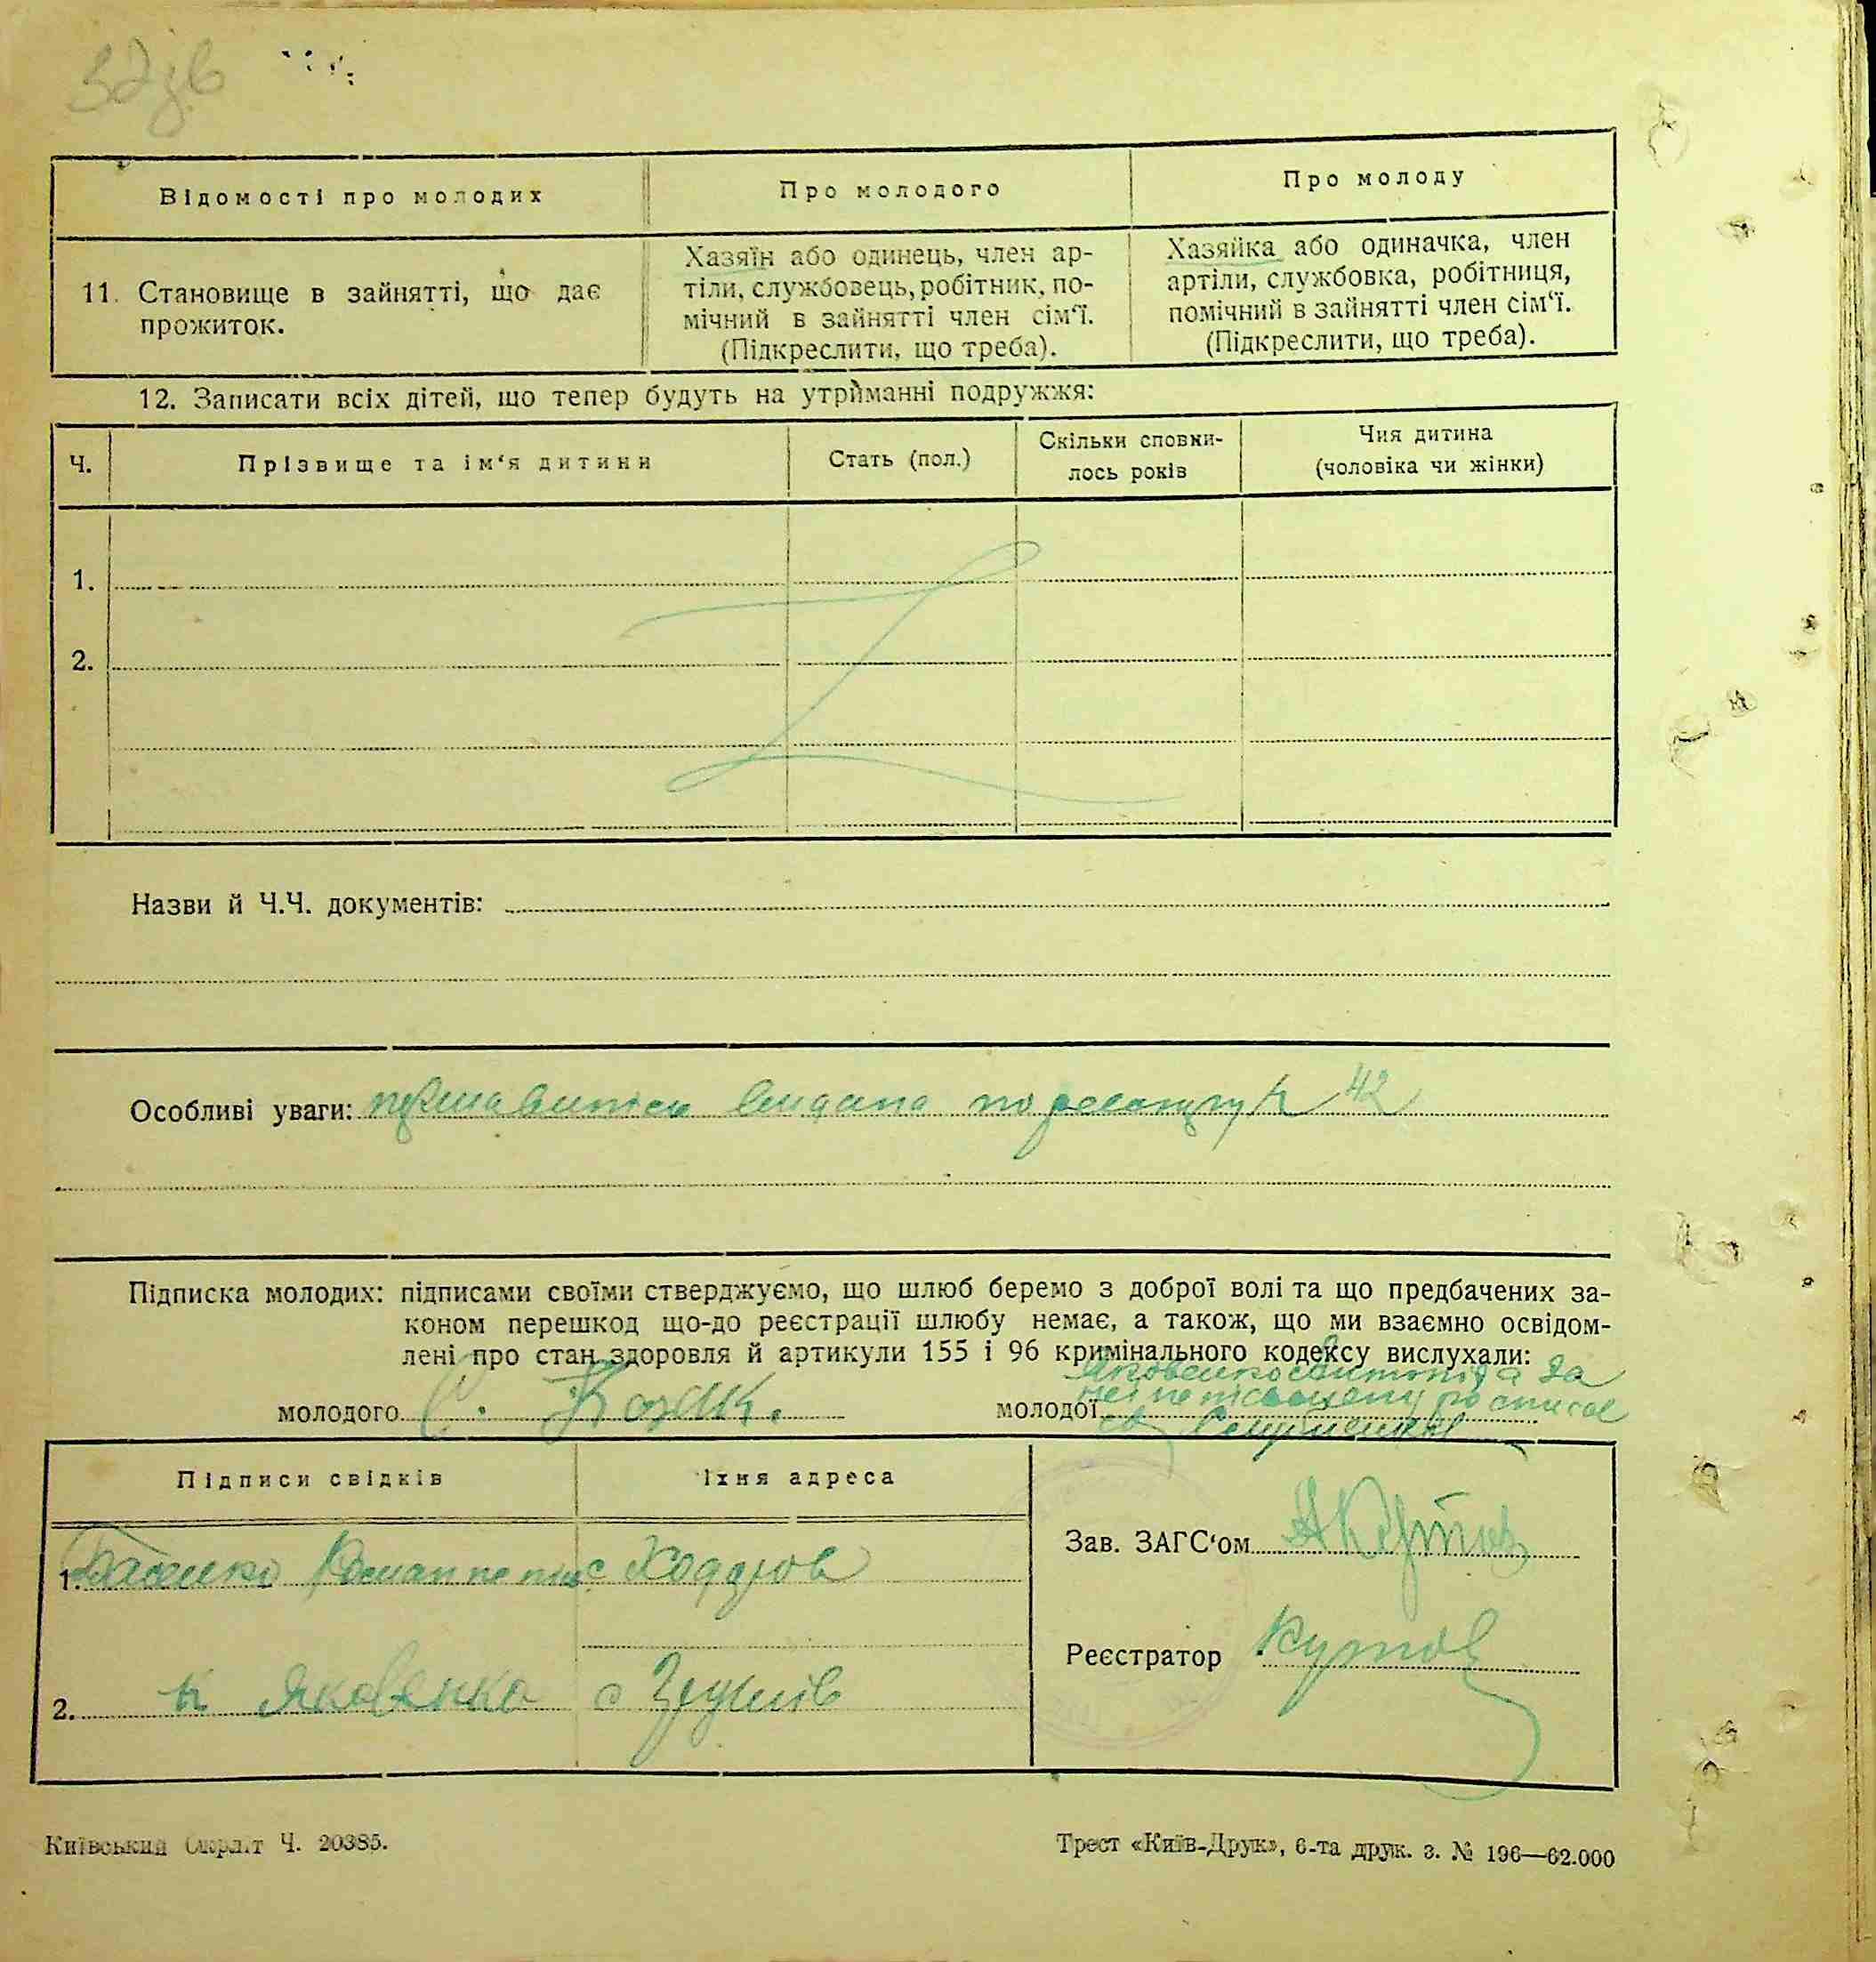 32зв
Відомості про молодих
Про молодого
Про молоду
11. Становище в зайнятті, що дає
прожиток.
Хазяїн або одинець, член ар-
тіли, службовець, робітник, по-
мічний в зайнятті член сім‘ї.
(Підкреслити, що треба).
Хазяйка або одиначка, член
артіли, службовка, робітниця,
помічний в зайнятті член сім‘ї.
(Підкреслити, що треба).
12. Записати всіх дітей, що тепер будуть на утриманні подружжя:
Ч.
Прізвище та ім‘я дитини
Стать (пол.)
Скільки сповни-
лось років
Чия дитина
(чоловіка чи жінки)
1.
2.
Назви й Ч.Ч. документів:
Особливі уваги: видана по 42
Підписка молодих: підписами своїми стверджуємо, що шлюб беремо з доброї волі та що предбачених за-
коном перешкод що-до реєстрації шлюбу немає, а також, що ми взаємно освідом-
лені про стан здоровля й артикули 155 і 96 кримінального кодексу вислухали:
молодого С. Козак.
Яковенко за
молодої
Підписи свідків
Їхня адреса
1. Роман
с Ходоров
2. Яковенко
с
Зав. ЗАГС‘ом
Реєстратор Кутов
Київський Окрліт Ч. 20385.
Трест «Київ-Друк», 6-та друк. з. № 196—62.000